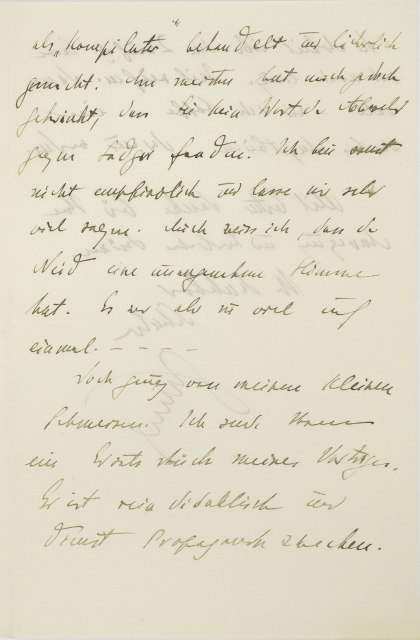 als „Kompilator" behandelt und lächerlich
gemacht. Am meisten hat mich jedoch
gekränkt, dass Sie kein Wort der Abwehr
gegen fanden. Ich bin sonst
nicht empfindlich und lasse mir sehr
viel sagen. Auch weiss ich, dass der
Neid eine unangenehme Stimme
hat. Es war aber zu viel auf
einmal. – – – –
Doch genug von meinen kleinen
Schmerzen. Ich sende Ihnen
ein meines Vortrages.
Er ist rein didaktisch und
dient Propagandazwecken.